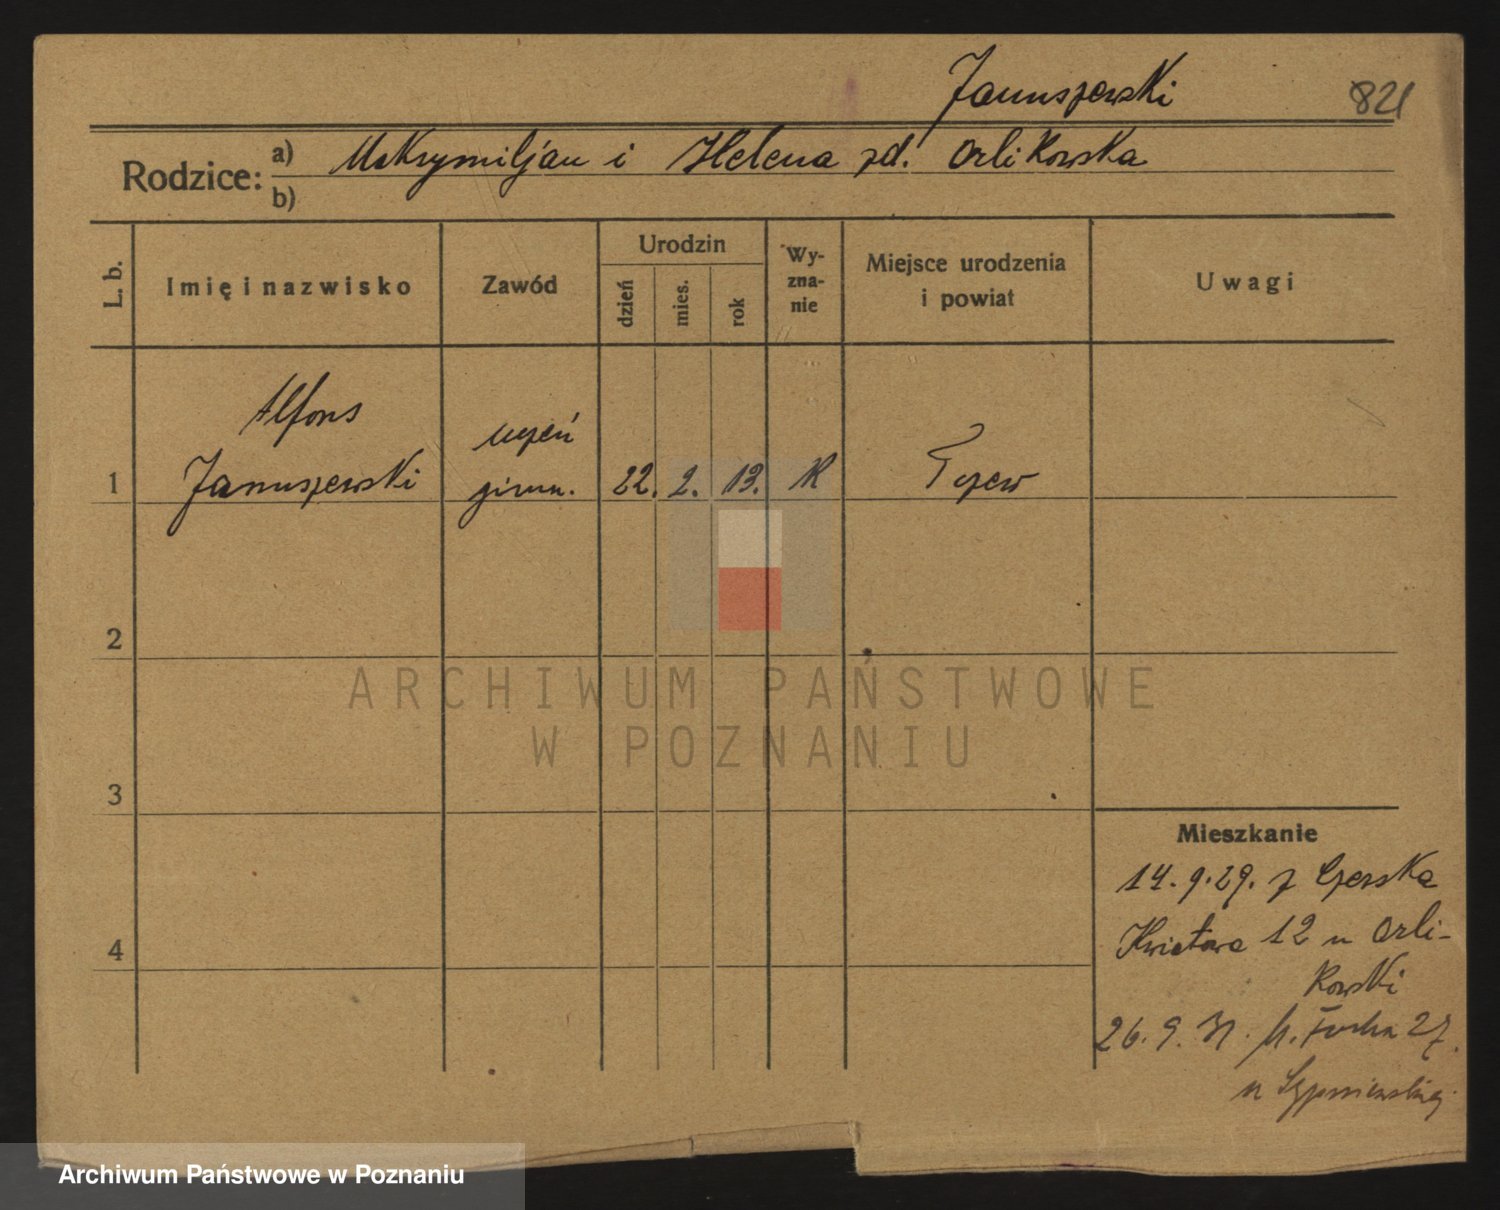 Januszewski
821
Rodzice: a) Maksymiljan i Helena zd. Orlikowska
b)
L. b.
Imię i nazwisko
Zawód
Urodzin
dzień
mies.
rok
Wy-
zna-
nie
Miejsce urodzenia
i powiat
Uwagi
Alfons
uczeń
1 Januszewski gimn. 22. 2. 13. K Tczew
2
3
4
Mieszkanie
14.9.29. z Czerska
Kwiatowa 12 u Orli-
kowski
26.9.31. M. Focha 27.
u Sypniewskiej
ARCHIWUM PAŃSTWOWE
W POZNANIU
Archiwum Państwowe w Poznaniu